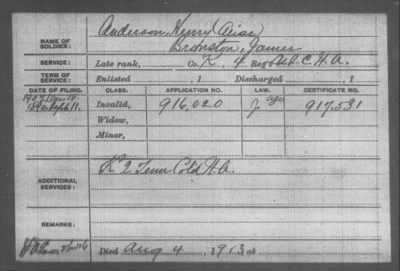 NAME OF SOLDIER: Anderson, Henry Alias
Branston, James
SERVICE: Late rank, Co. K, 4 Reg't U.S.C.H.A.
TERM OF SERVICE: Enlisted , 1 Discharged , 1
DATE OF FILING. CLASS. APPLICATION NO. LAW. CERTIFICATE NO.
Invalid, 916,020 917,531
Widow,
Minor,
ADDITIONAL SERVICES: K 2 Tenn Cold H.A.
REMARKS:
Died Aug 4, 1913 at